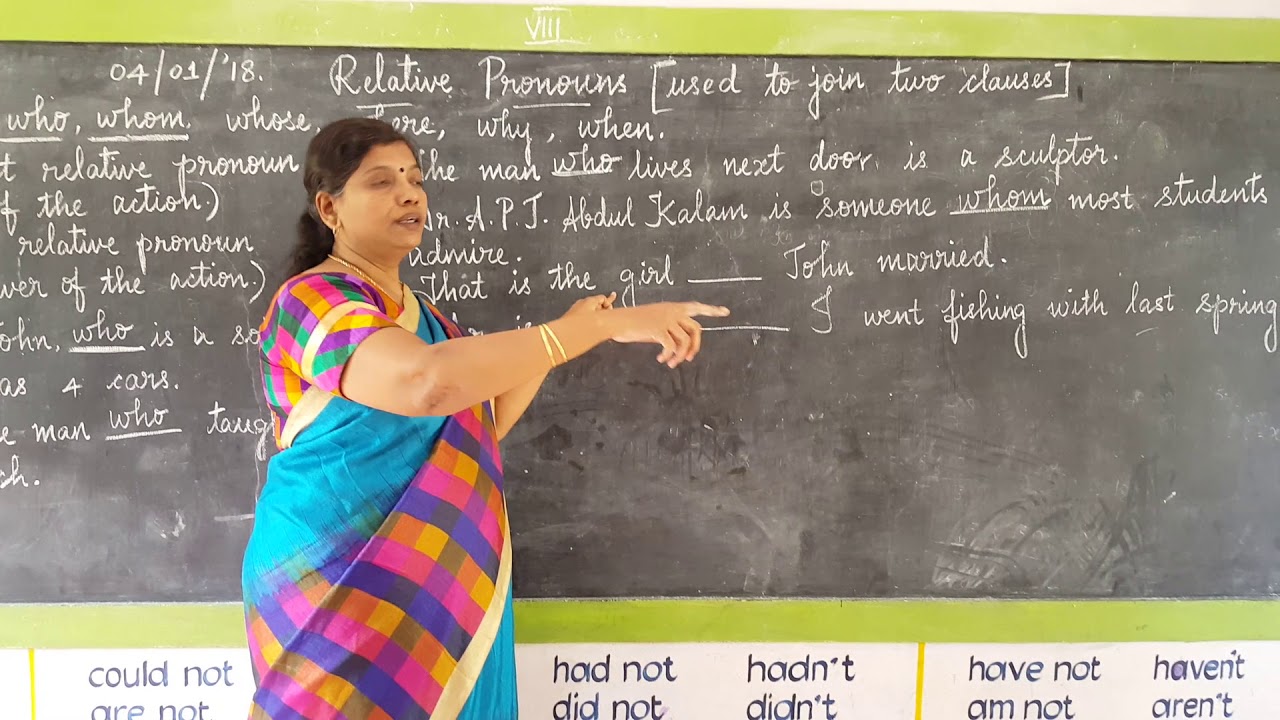 VIII
04/01/'18. Relative Pronouns [used to join two clauses]
who, whom, whose, why, when.
relative pronoun man who lives next door, is a sculptor.
of the action.) A.P.J. Abdul Kalam is someone whom most students
relative pronoun admire.
of the action.) That is the girl ____ John married.
who is a ____ I went fishing with last spring
4 cars.
man who
could not had not hadn't have not haven't
are not did not didn't am not aren't